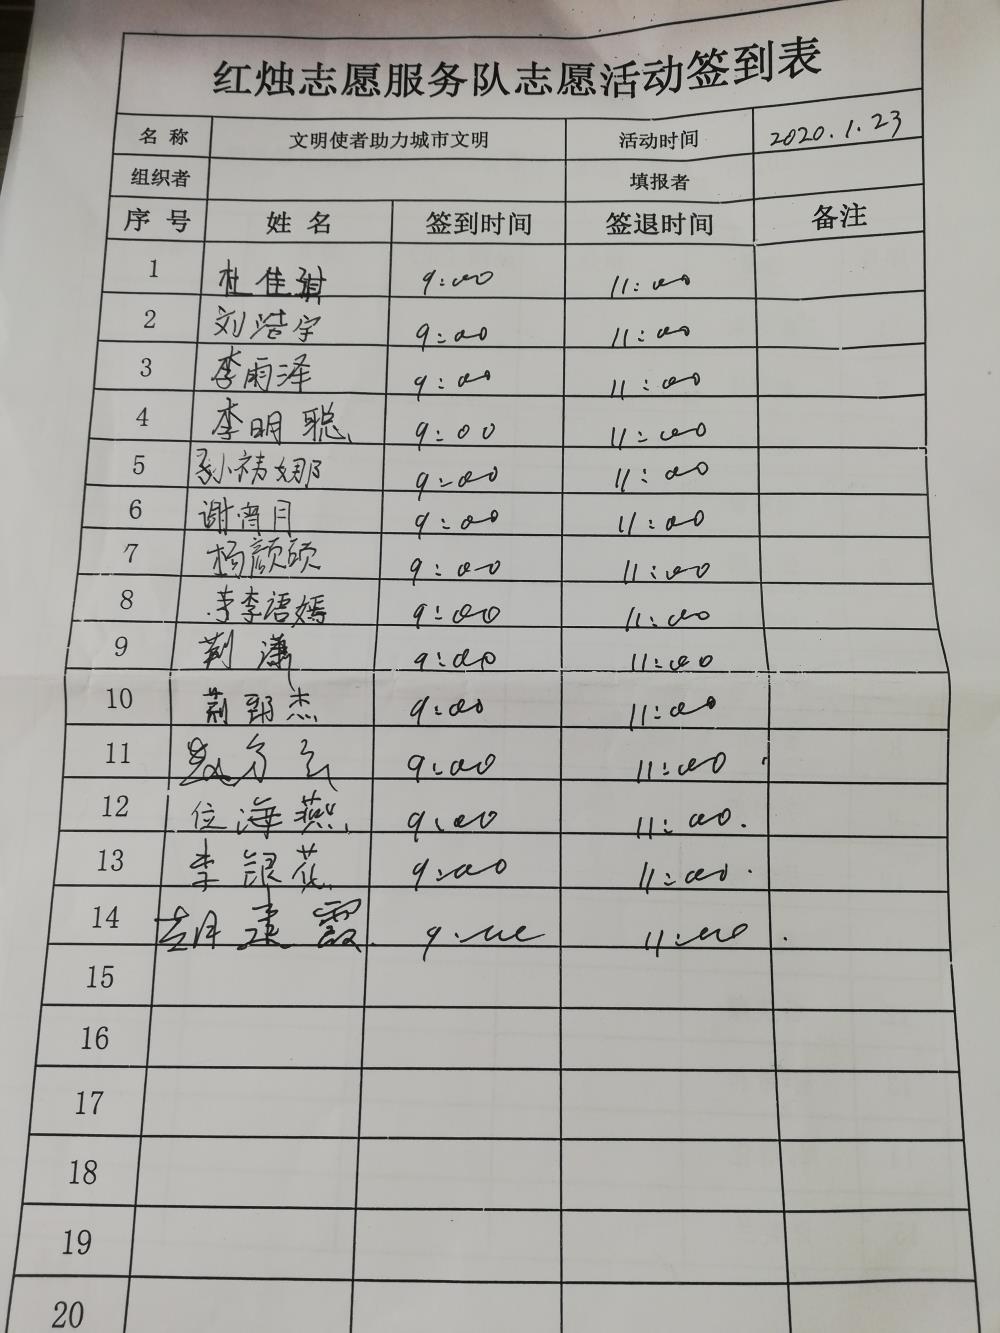 红烛志愿服务队志愿活动签到表
名 称 文明使者助力城市文明 活动时间 2020.1.23
组织者 填报者
序 号 姓 名 签到时间 签退时间 备注
1 杜佳琪 9:00 11:00
2 刘浩宇 9:00 11:00
3 李雨泽 9:00 11:00
4 李明聪 9:00 11:00
5 孙祎娜 9:00 11:00
6 谢宵月 9:00 11:00
7 杨颜硕 9:00 11:00
8 李语嫣 9:00 11:00
9 荆潇 9:00 11:00
10 荆郅杰 9:00 11:00
11 9:00 11:00
12 位海燕 9:00 11:00
13 李银花 9:00 11:00
14 9:00 11:00
15
16
17
18
19
20